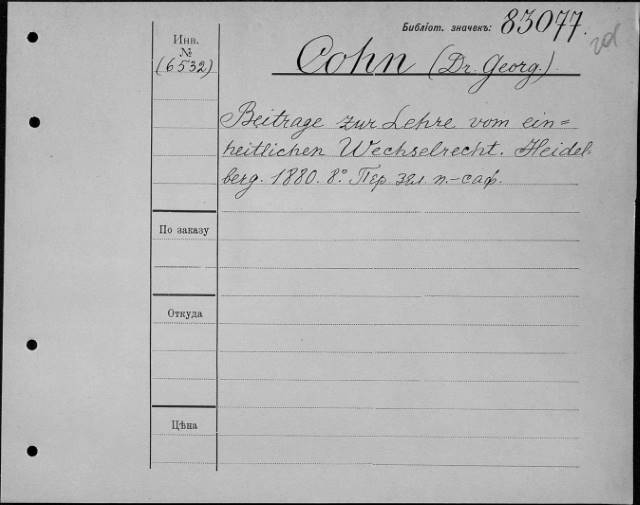 Библіот. значекъ: 83077.
Инв.
№
(6532)
Cohn (Dr. Georg.)
Beitrage zur Lehre vom ein=
heitlichen Wechselrecht. Heidel-
berg. 1880. 8º. Пер. згл. п.-саф.
По заказу
Откуда
Цѣна